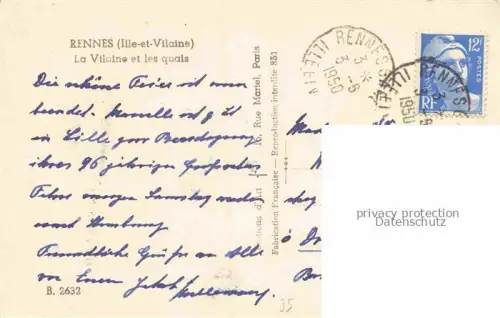 RENNES (Ille-et-Vilaine)
La Vilaine et les quais
Die schöne Feier ist nun
beendet. Marcelle
in Lille zur Beerdigung
ihres 96 jährigen Großvaters
Fahre morgen Samstag wieder
nach Hombourg
Freundliche Grüße an Alle
von Eurem Jakob
B. 2632
d'Art
16, Rue Martel, Paris
Fabrication Française — Reproduction interdite 851
RENNES
ILLE
1950
RENNES
ILLE
1950
12F
POSTES
RF
à
privacy protection
Datenschutz
35